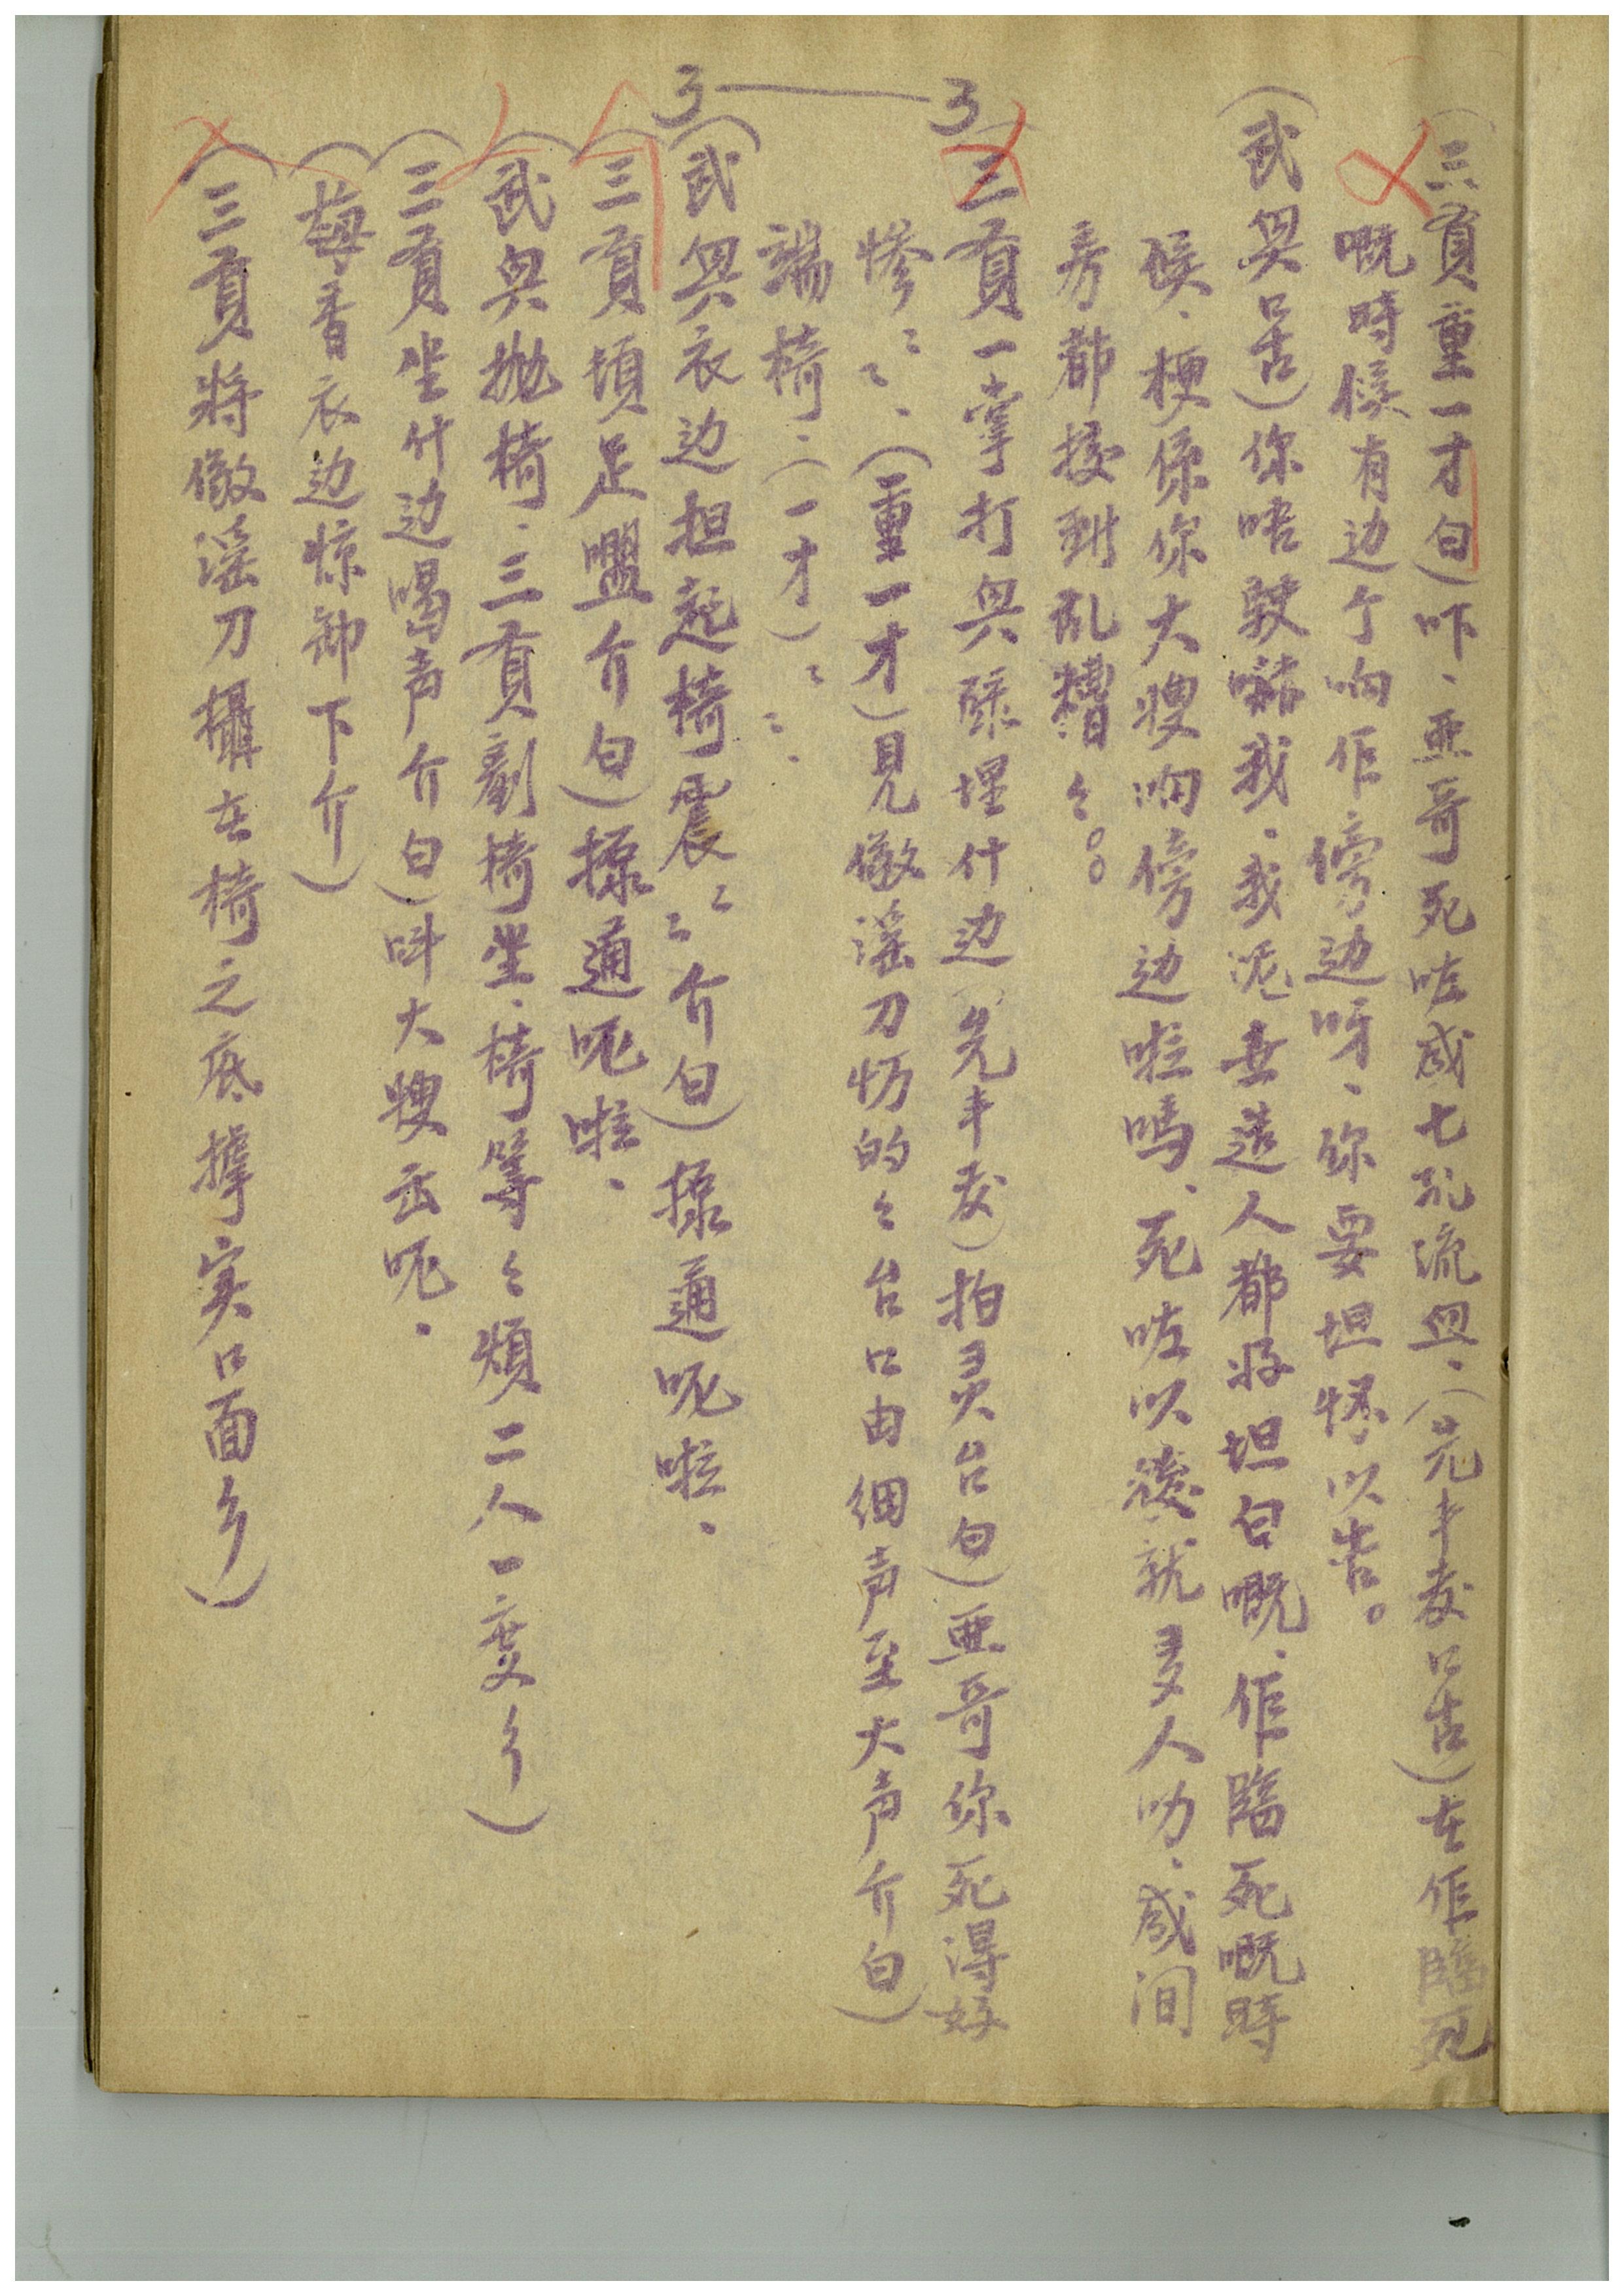 (三貢重一才白)吓、亜哥死咗咸七孔流血、(先丰友口古)在佢臨死
嘅時候有边个响佢傍边呀、你要坦怀以告。
(武與口古)你唔駛嚇我、我沉無造人都好坦白嘅、佢臨死嘅時
候、梗係你大嫂响傍边啦嗎、死咗以後就多人叻、咸间
房都搂到乱糟々。。
3 (三貢一掌打與 埋什边(先丰友)拍灵台白)亜哥你死得好
惨ミミ、(重一才)見 滛刀 的々台口由細声至大声介白)
端椅ミ(一才)ミミ
3 (武與衣边担起椅震ミミ介白)揼通呢啦、
(三貢頓足 介白)揼通呢啦、
(武與抛椅、三貢 椅坐、椅等々煩二人一度介)
(三貢坐什边喝声介白)叫大嫂出呢、
(梅香衣边惊卸下介)
(三貢將 滛刀攝在椅之底 实口面介)